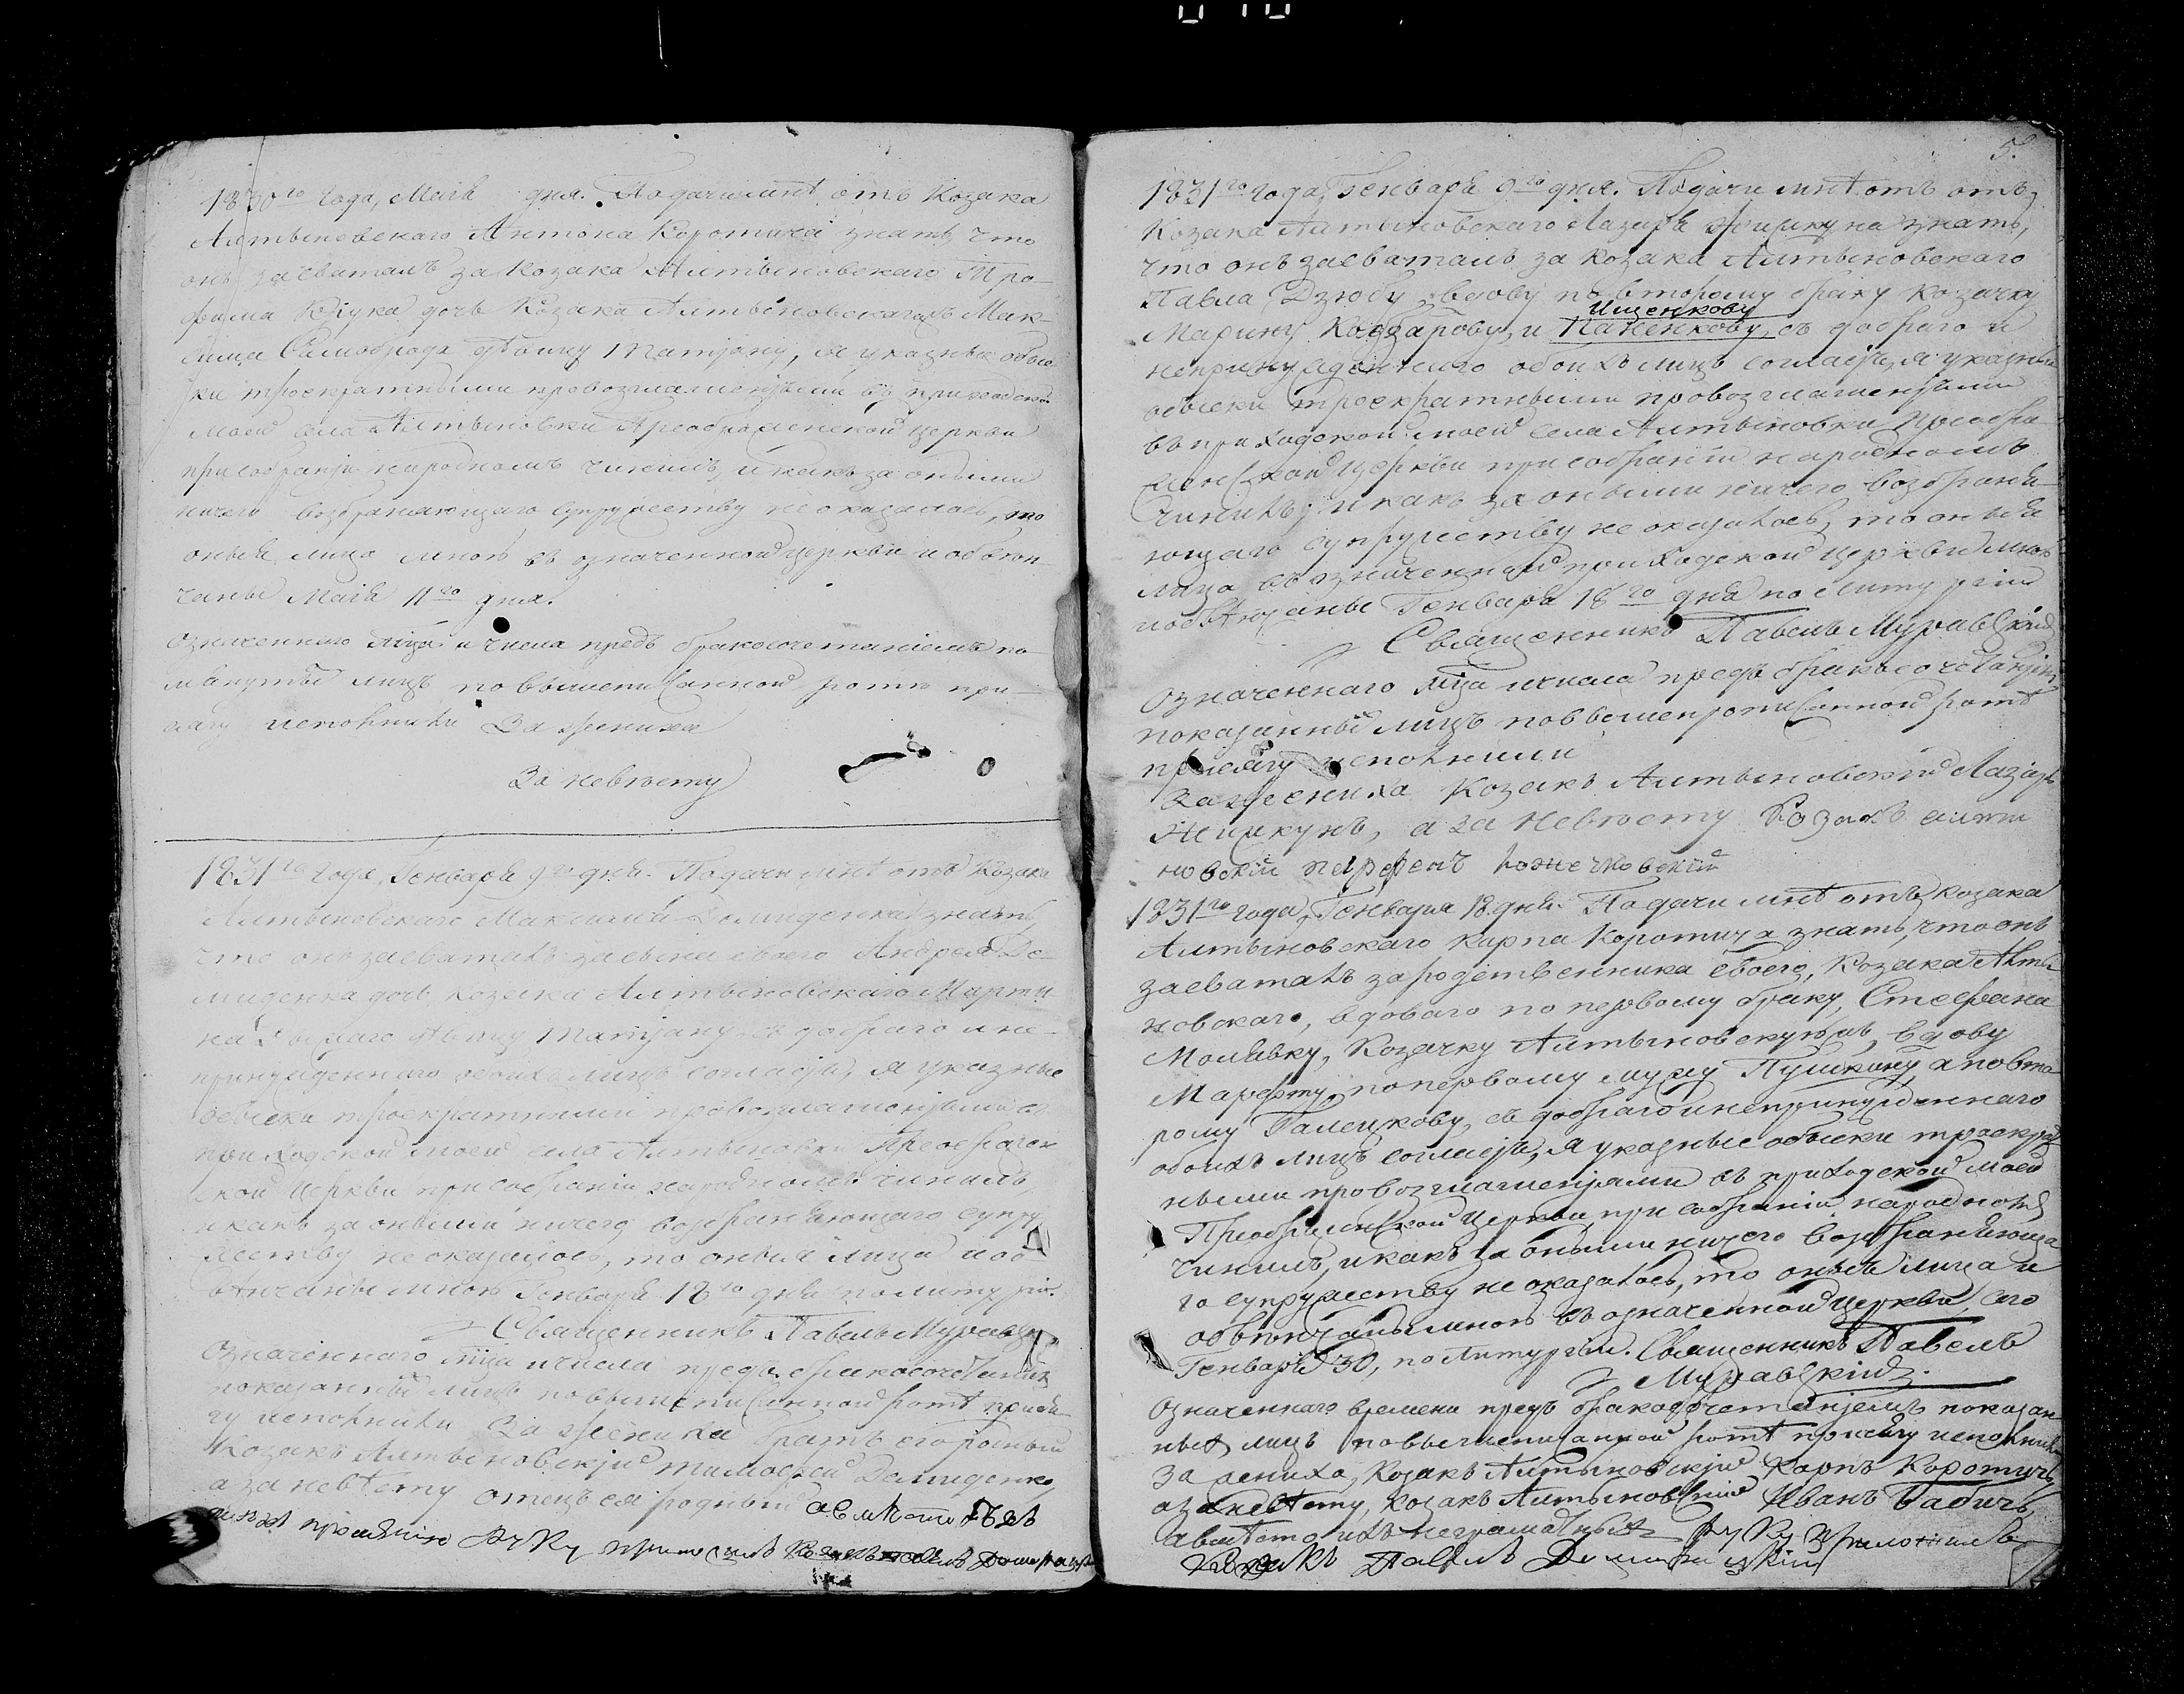 1830го года, Маія дня. По дачи мнѣ отъ Козака
Алтыновскаго Антона Коротича знать что
онъ засваталъ за Козака Алтыновскаго Тро-
фима Крука дочь Козака Алтыновскагожъ Мак-
сима дѣвицу Татіану, я указные обыс
ки троекратными провозглашеніями въ приходской
моей села Алтыновки Преображенской церкви
при собраніи народномъ чинилъ, и какъ за оными
ничего возбраняющаго супружеству не оказалось, то
оныя лица мною въ означенной церкви и обвѣн-
чаны Маія 11го дня.
Означеннаго мца и числа предъ бракосочетаніемъ по-
мянутыя лица по вышеписанной ротѣ при-
сягу исполнили За жениха
За невѣсту
1831го года, Генваря 9го дня. По дачи мнѣ отъ Козака
Алтыновскаго Максима Демиденка знать,
что онъ засваталъ за сына своего Андрея Де-
миденка дочь Козака Алтыновскаго Марти-
на дѣвицу Татіану, съ добраго и не-
принужденнаго обоихъ лицъ согласія, я указные
обыски троекратными провозглашеніями въ
приходской моей села Алтыновки Преображен
ской церкви при собраніи народномъ чинилъ,
и какъ за оными ничего возбраняющаго супру
жеству не оказалось, то оныя лица и об-
вѣнчаны мною Генваря 18го дня по литургіи.
Священникъ Павелъ Муравскій
Означеннаго мца и числа предъ бракосочетаніемъ
показанныя лица по вышеписанной ротѣ прися
гу исполнили За жениха братъ его родный
Козакъ Алтыновскій тимофей Демиденко,
а за невѣсту отецъ ея родный а вмѣсто
прошенію руку приложилъ Козакъ
5.
1831го года, Генваря 9го дня. По дачи мнѣ отъ отъ
Козака Алтыновскаго Лазаря Жишкуна знать,
что онъ засваталъ за козака Алтыновскаго
Павла Дзюбу, вдову по второму браку козачку
Ищенкову
Марину Кобзарову, и Паненкову, съ добраго и
непринужденнаго обоихъ лицъ согласія, я указныи
обыски троекратными провозглашеніями
въ приходской моей села Алтыновки Преобра
женской церкви при собраніи народномъ
чинилъ; и какъ за оными ничего возбраня-
ющаго супружеству не оказалось, то оныя
лица въ означенной приходской церкви мною
и обвѣнчаны Генваря 18го дня по литургіи
Священникъ Павелъ Муравскій
Означеннаго мца и числа предъ бракосочетаніемъ
показанныя лица по вышепрописанной ротѣ
присягу исполнили
За жениха Козакъ Алтыновскій Лазарь
Жишкунъ, а за невѣсту Козакъ алти
новскій парфенъ
1831го года, Генваря 18 дня. По дачи мнѣ отъ козака
Алтыновскаго Карпа Коротича знать, что онъ
засваталъ за родственника своего, Козака Алты-
новскаго, вдоваго по первому браку, Стефана
Молявку, Козачку Алтыновскуюжъ, вдову
Марфу, по первому мужу Пушкину, а по вто-
рому Галецкову, съ добраго и непринужденнаго
обоихъ лицъ согласія, я указные обыски троекрат
ными провозглашеніями въ приходской моей
Преображенской церкви, при собраніи народномъ
чинилъ, и какъ за оными ничего возбраняюща
го супружеству не оказалось, то оныя лица и
обвѣнчаны мною въ означенной церкви, сего
Генваря 30, по литургіи. Священникъ Павелъ
Муравскій.
Означеннаго времени предъ бракосочетаніемъ показан-
ныя лица по вышеписанной ротѣ присягу исполнили
За жениха, Козакъ Алтыновскій Карпъ Коротичъ,
а за невѣсту, козакъ Алтыновскій Иванъ Бабичъ,
а вмѣсто ихъ неграмотныхъ руку приложилъ
Козакъ Павелъ